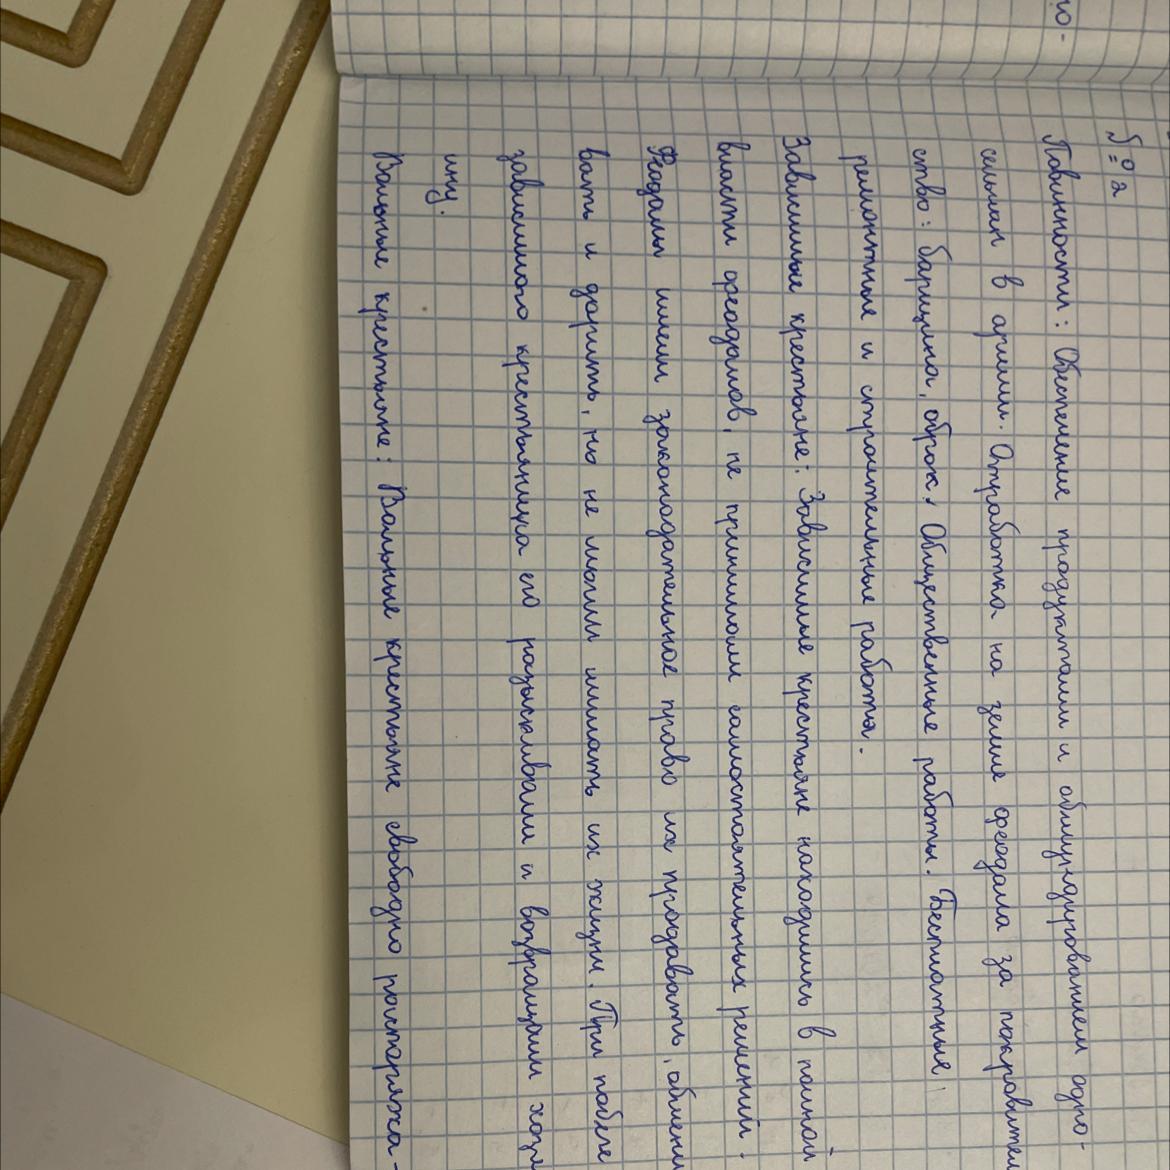 ю-
№2
Повинности: Обеспечение продуктами и обмундированием одно-
сельчан в армии. Отработка на земле феодала за покровитель
ство: барщина, оброк. Общественные работы. Бесплатные
ремонтные и строительные работы.
Зависимые крестьяне: Зависимые крестьяне находились в полной
власти феодалов, не принимали самостоятельных решений.
Феодалы имели законодательное право их продавать, обмени
вать и дарить, но не могли лишать их жизни. При побеге
зависимого крестьянина его разыскивали и возвращали хозя
ину.
Вольные крестьяне: Вольные крестьяне свободно распоряжа-